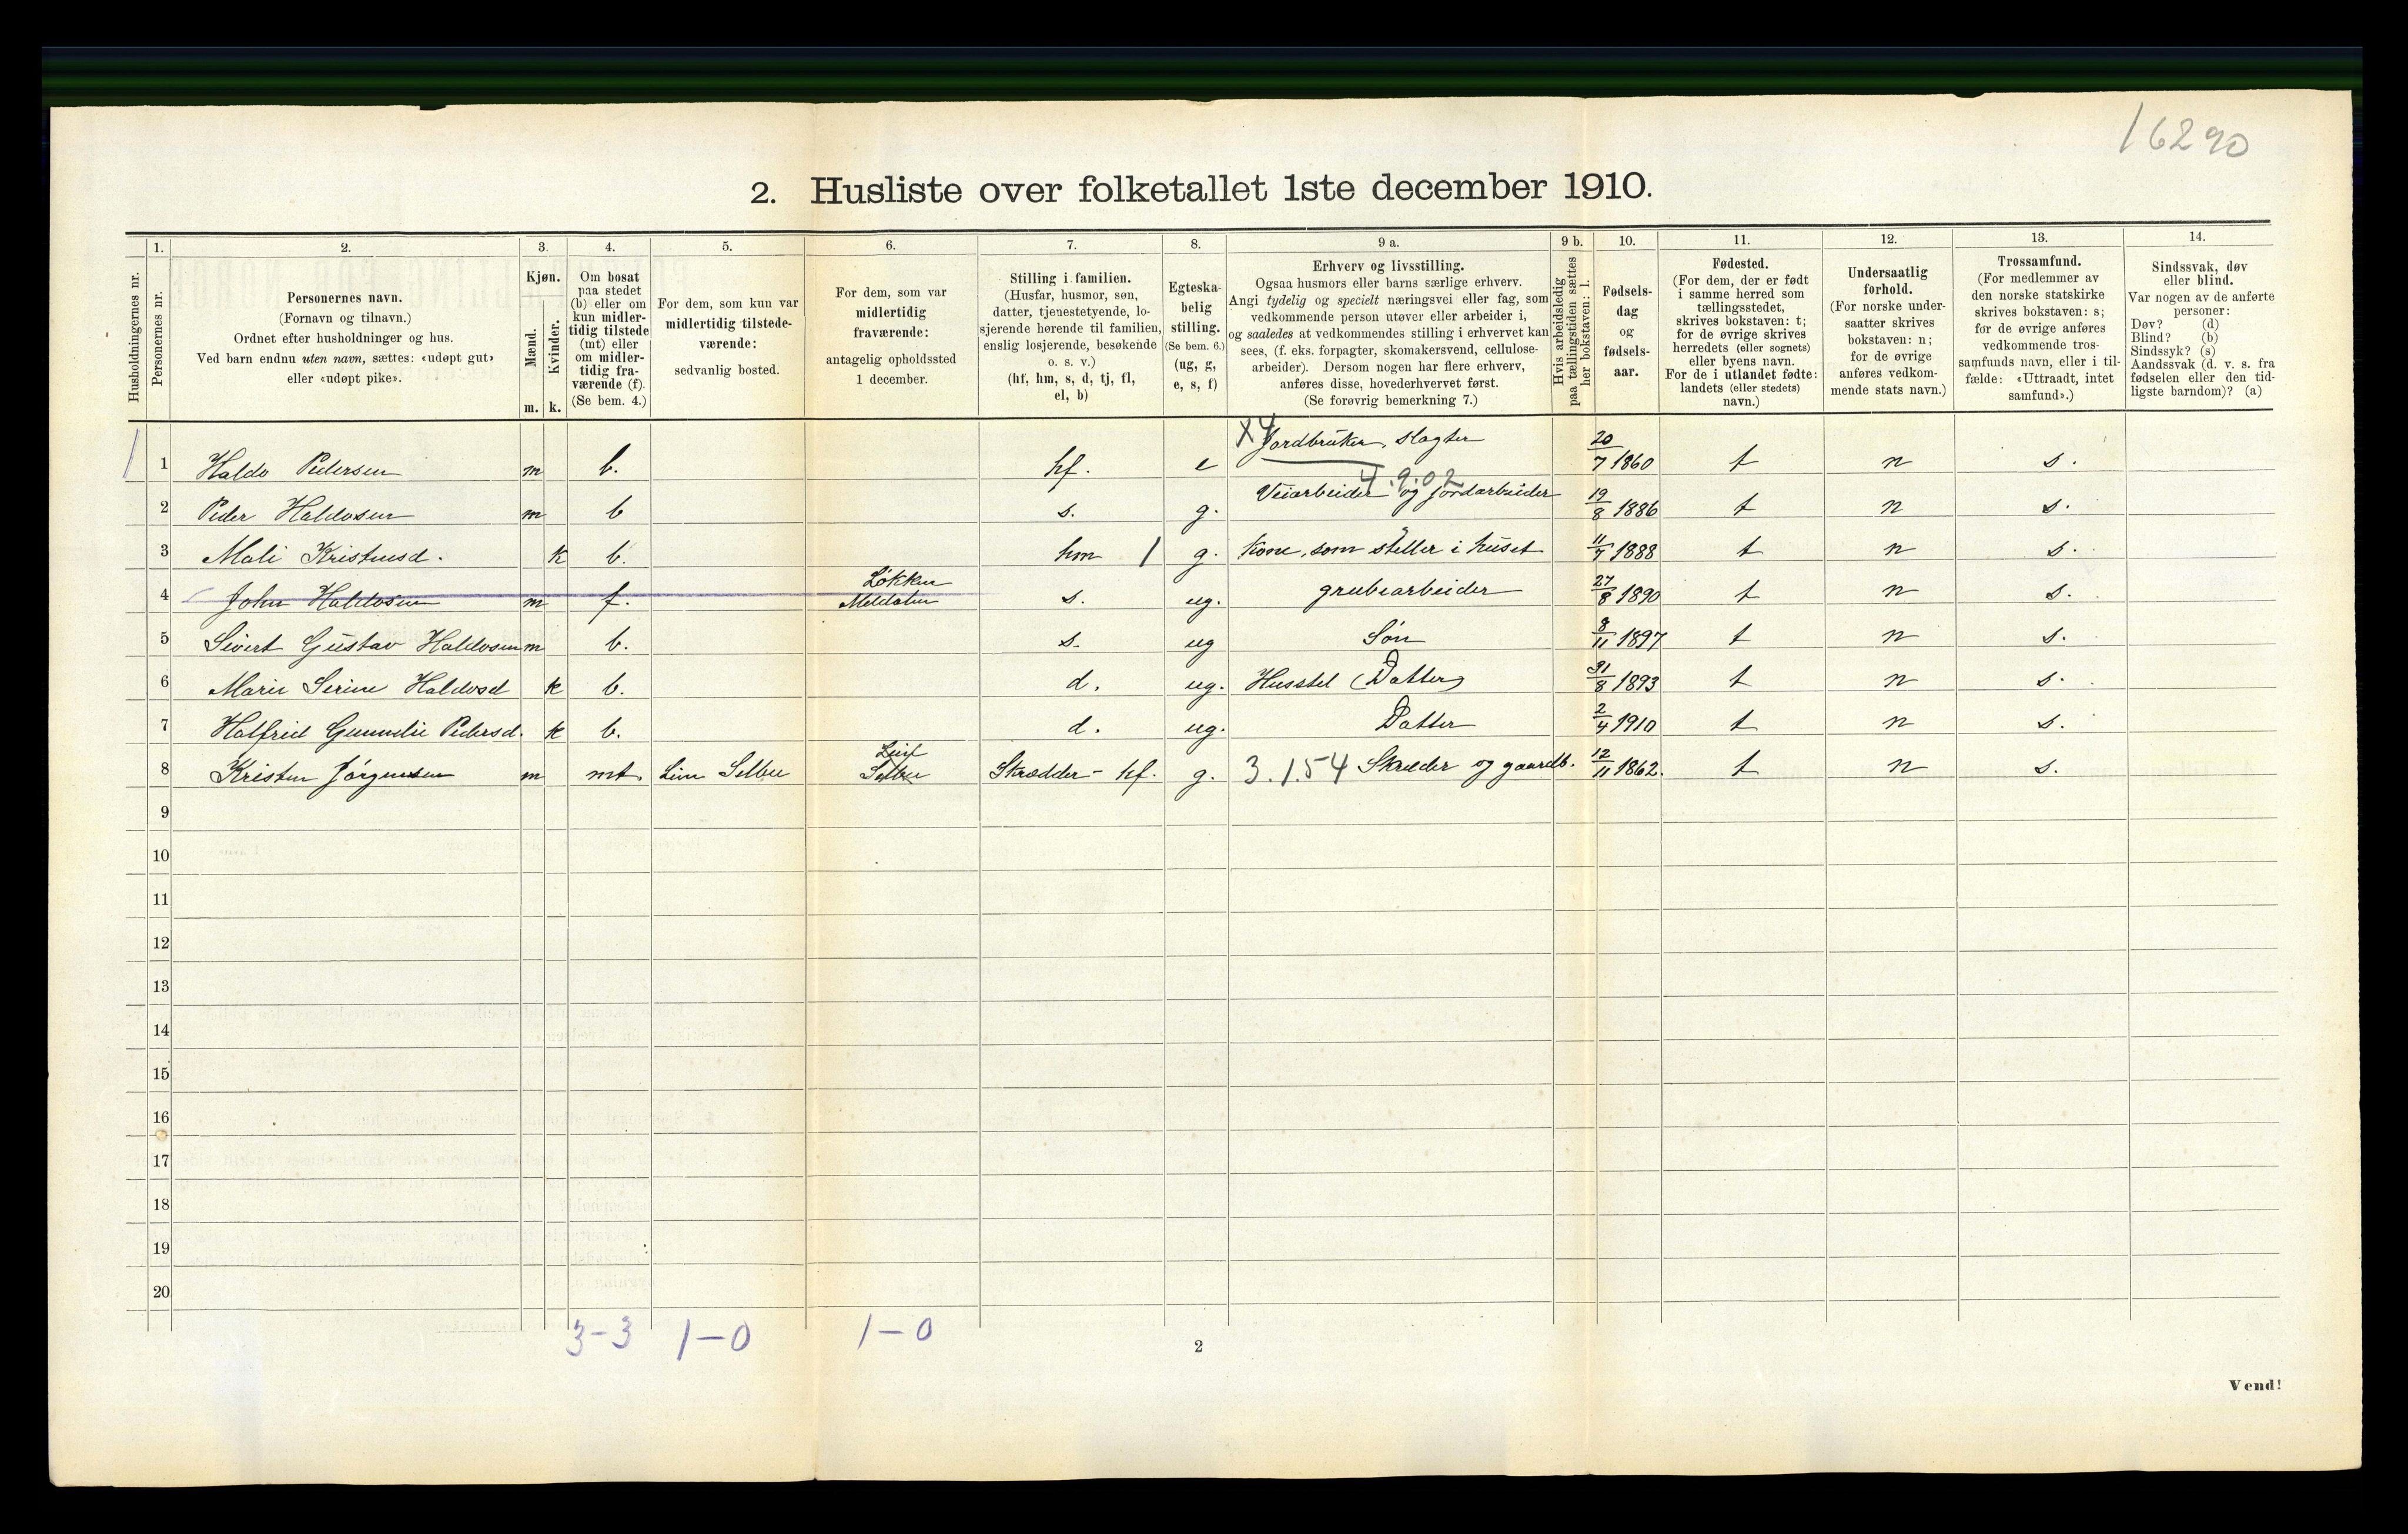 16290
2. Husliste over folketallet 1ste december 1910.
Husholdningernes nr.
1.
Personernes nr.
2.
Personernes navn.
(Fornavn og tilnavn.)
Ordnet efter husholdninger og hus.
Ved barn endnu uten navn, sættes: «udøpt gut»
eller «udøpt pike».
3.
Kjøn.
Mænd.
Kvinder.
m. k.
4.
Om bosat
paa stedet
(b) eller om
kun midler-
tidig tilstede
(mt) eller
om midler-
tidig fra-
værende (f).
(Se bem. 4.)
5.
For dem, som kun var
midlertidig tilstede-
værende:
sedvanlig bosted.
6.
For dem, som var
midlertidig
fraværende:
antagelig opholdssted
1 december.
7.
Stilling i familien.
(Husfar, husmor, søn,
datter, tjenestetyende, lo-
sjerende hørende til familien,
enslig losjerende, besøkende
o. s. v.)
(hf, hm, s, d, tj, fl,
el, b)
8.
Egteska-
belig
stilling.
(Se bem. 6.)
(ug, g,
e, s, f)
9 a.
Erhverv og livsstilling.
Ogsaa husmors eller barns særlige erhverv.
Angi tydelig og specielt næringsvei eller fag, som
vedkommende person utøver eller arbeider i,
og saaledes at vedkommendes stilling i erhvervet kan
sees, (f. eks. forpagter, skomakersvend, cellulose-
arbeider). Dersom nogen har flere erhverv,
anføres disse, hovederhvervet først.
(Se forøvrig bemerkning 7.)
9 b.
Hvis arbeidsledig
paa tællingstiden sættes
her bokstaven: l.
10.
Fødsels-
dag
og
fødsels-
aar.
11.
Fødested.
(For dem, der er født
i samme herred som
tællingsstedet,
skrives bokstaven: t;
for de øvrige skrives
herredets (eller sognets)
eller byens navn.
For de i utlandet fødte:
landets (eller stedets)
navn.)
12.
Undersaatlig
forhold.
(For norske under-
saatter skrives
bokstaven: n;
for de øvrige
anføres vedkom-
mende stats navn.)
13.
Trossamfund.
(For medlemmer av
den norske statskirke
skrives bokstaven: s;
for de øvrige anføres
vedkommende tros-
samfunds navn, eller i til-
fælde: «Uttraadt, intet
samfund».)
14.
Sindssvak, døv
eller blind.
Var nogen av de anførte
personer:
Døv? (d)
Blind? (b)
Sindssyk? (s)
Aandssvak (d. v. s. fra
fødselen eller den tid-
ligste barndom)? (a)
1 1 Haldo Pedersen m b. hf. e X4 Jordbruker, slagter 20/7 1860 t n s.
4.9.02
2 Peder Haldosen m b s. g. Veiarbeider og jordarbeider 19/8 1886 t n s.
3 Mali Kristensd. k b. hm 1 g. Kone, som steller i huset 11/7 1888 t n s.
4 John Haldosen m f. Løkken Meldalen s. ug. grubearbeider 27/8 1890 t n s.
5 Sivert Gustav Haldosen m b. s. ug Søn 8/11 1897 t n s.
6 Marie Serine Haldosd k b. d. ug. Husstel (Datter) 31/8 1893 t n s.
7 Halfrid Gunnelie Pedersd. k b. d. ug. Datter 2/4 1910 t n s.
8 Kristen Jørgensen m mt. Selbu Selbu Skrædder - hf. g. 3.1.54 Skræder og gaardb. 12/11 1862. t n s.
9
10
11
12
13
14
15
16
17
18
19
20
3-3 1-0 1-0
2
Vend!